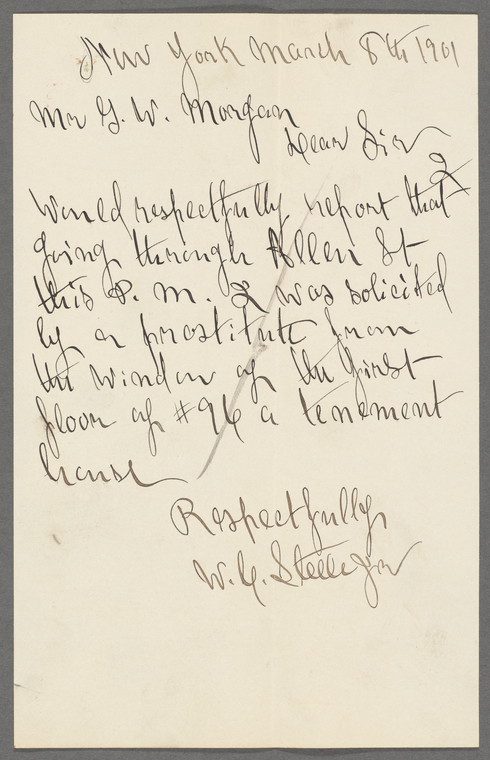 New York March 8th 1901
Mr G. W. Morgan
Dear Sir
I
Would respectfully report that
going through Allen St
this P. M. I was solicited
by a prostitute from
the window of the first
floor of #96 a tenement
house
Respectfully
W. C. Steele Jr